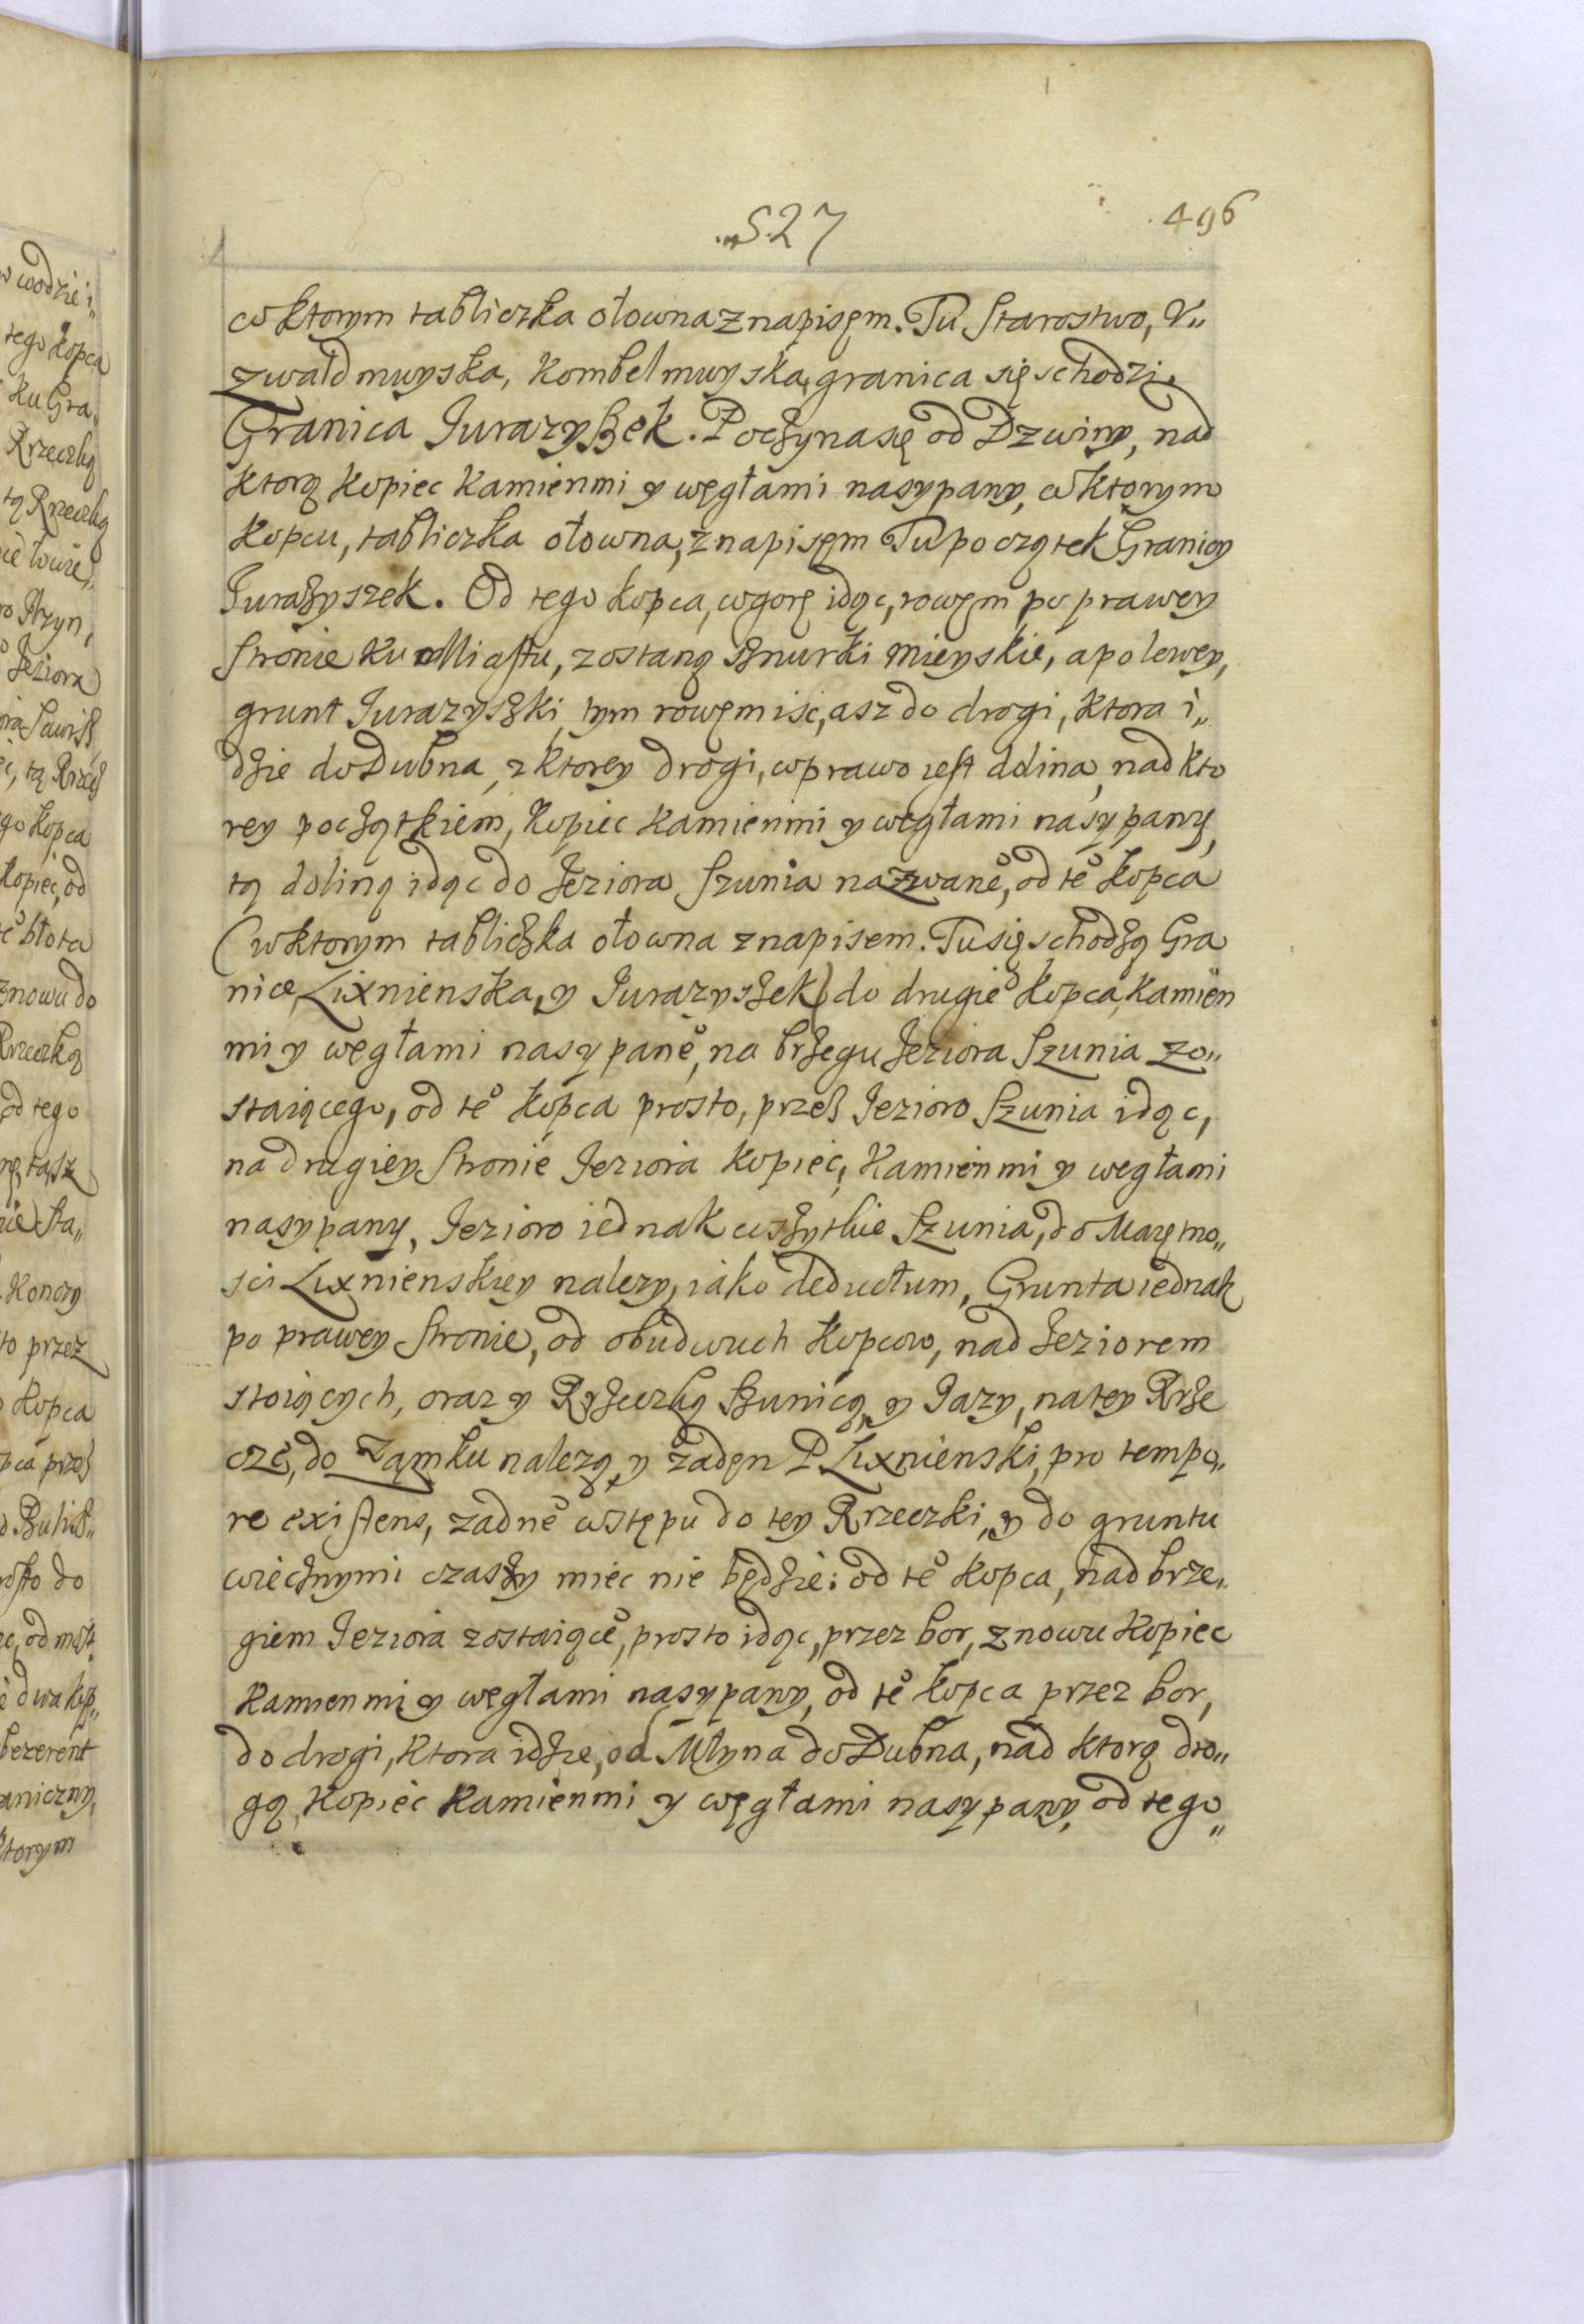 527
496
w ktorym tabliczka ołowna z napisęm. Tu Starostwo, V„
zwaldmuyska, Kombelmuyska, granica się schodzi.
Granica Jurazyszek. Poczyna się od Dzwiny, nad
ktorą Kopiec Kamienmi y węgłami nasypany, w ktorym
Kopcu, tabliczka ołowna, z napisęm Tu początek Granicy
Jurazyszek. Od tego Kopca, w gorę idąc, rowęm po prawey
stronie Ku Miastu, zostaną sznurki mieyskie, a po lewey,
grunt Jurazyszki, tym rowęm isc, asz do drogi, ktora i„
dzie do Dubna, z ktorey drogi, w prawo iest dolina, nad kto
rey początkiem, Kopiec Kamienmi y węgłami nasypany,
tą doliną idąc do Jeziora Szunia nazwane͛, od te͛ Kopca
(w ktorym tabliczka ołowna z napisem. Tu się schodzą Gra
nice Lixnienska, y Jurazyszek) do drugie͛ Kopca, Kamien
mi y węgłami nasypane͛, na brzegu Jeziora Szunia zo„
staiącego, od te͛ Kopca prosto, przez Jezioro Szunia idąc,
na drugiey stronie Jeziora Kopiec, Kamienmi y wegłami
nasypany, Jezioro iednak wszytkie Szunia, do Maiętno„
sci Lixnienskiey nalezy, iako deductum, Grunta iednak
po prawey stronie, od obudwuch Kopcow, nad Jeziorem
stoiących, oraz y Rzeczką Szunicą, y Jazy, na tey Rze
cze, do Zamku nalezą, y zadęn P. Lixnienski, pro tempo„
re existens, zadne͛ wstępu do tey Rzeczki, y do gruntu
wiecznymi czaszy miec nie będzie: od te͛ Kopca, nad brze„
giem Jeziora zostaiące͛, prosto idąc, przez bor, znowu Kopiec
Kamienmi y węgłami nasypany, od te͛ Kopca przez bor,
do drogi, ktora idzie, od Młyna do Dubna, nad ktorą dro„
gą, Kopiec Kamienmi y węgłami nasypany, od tego„